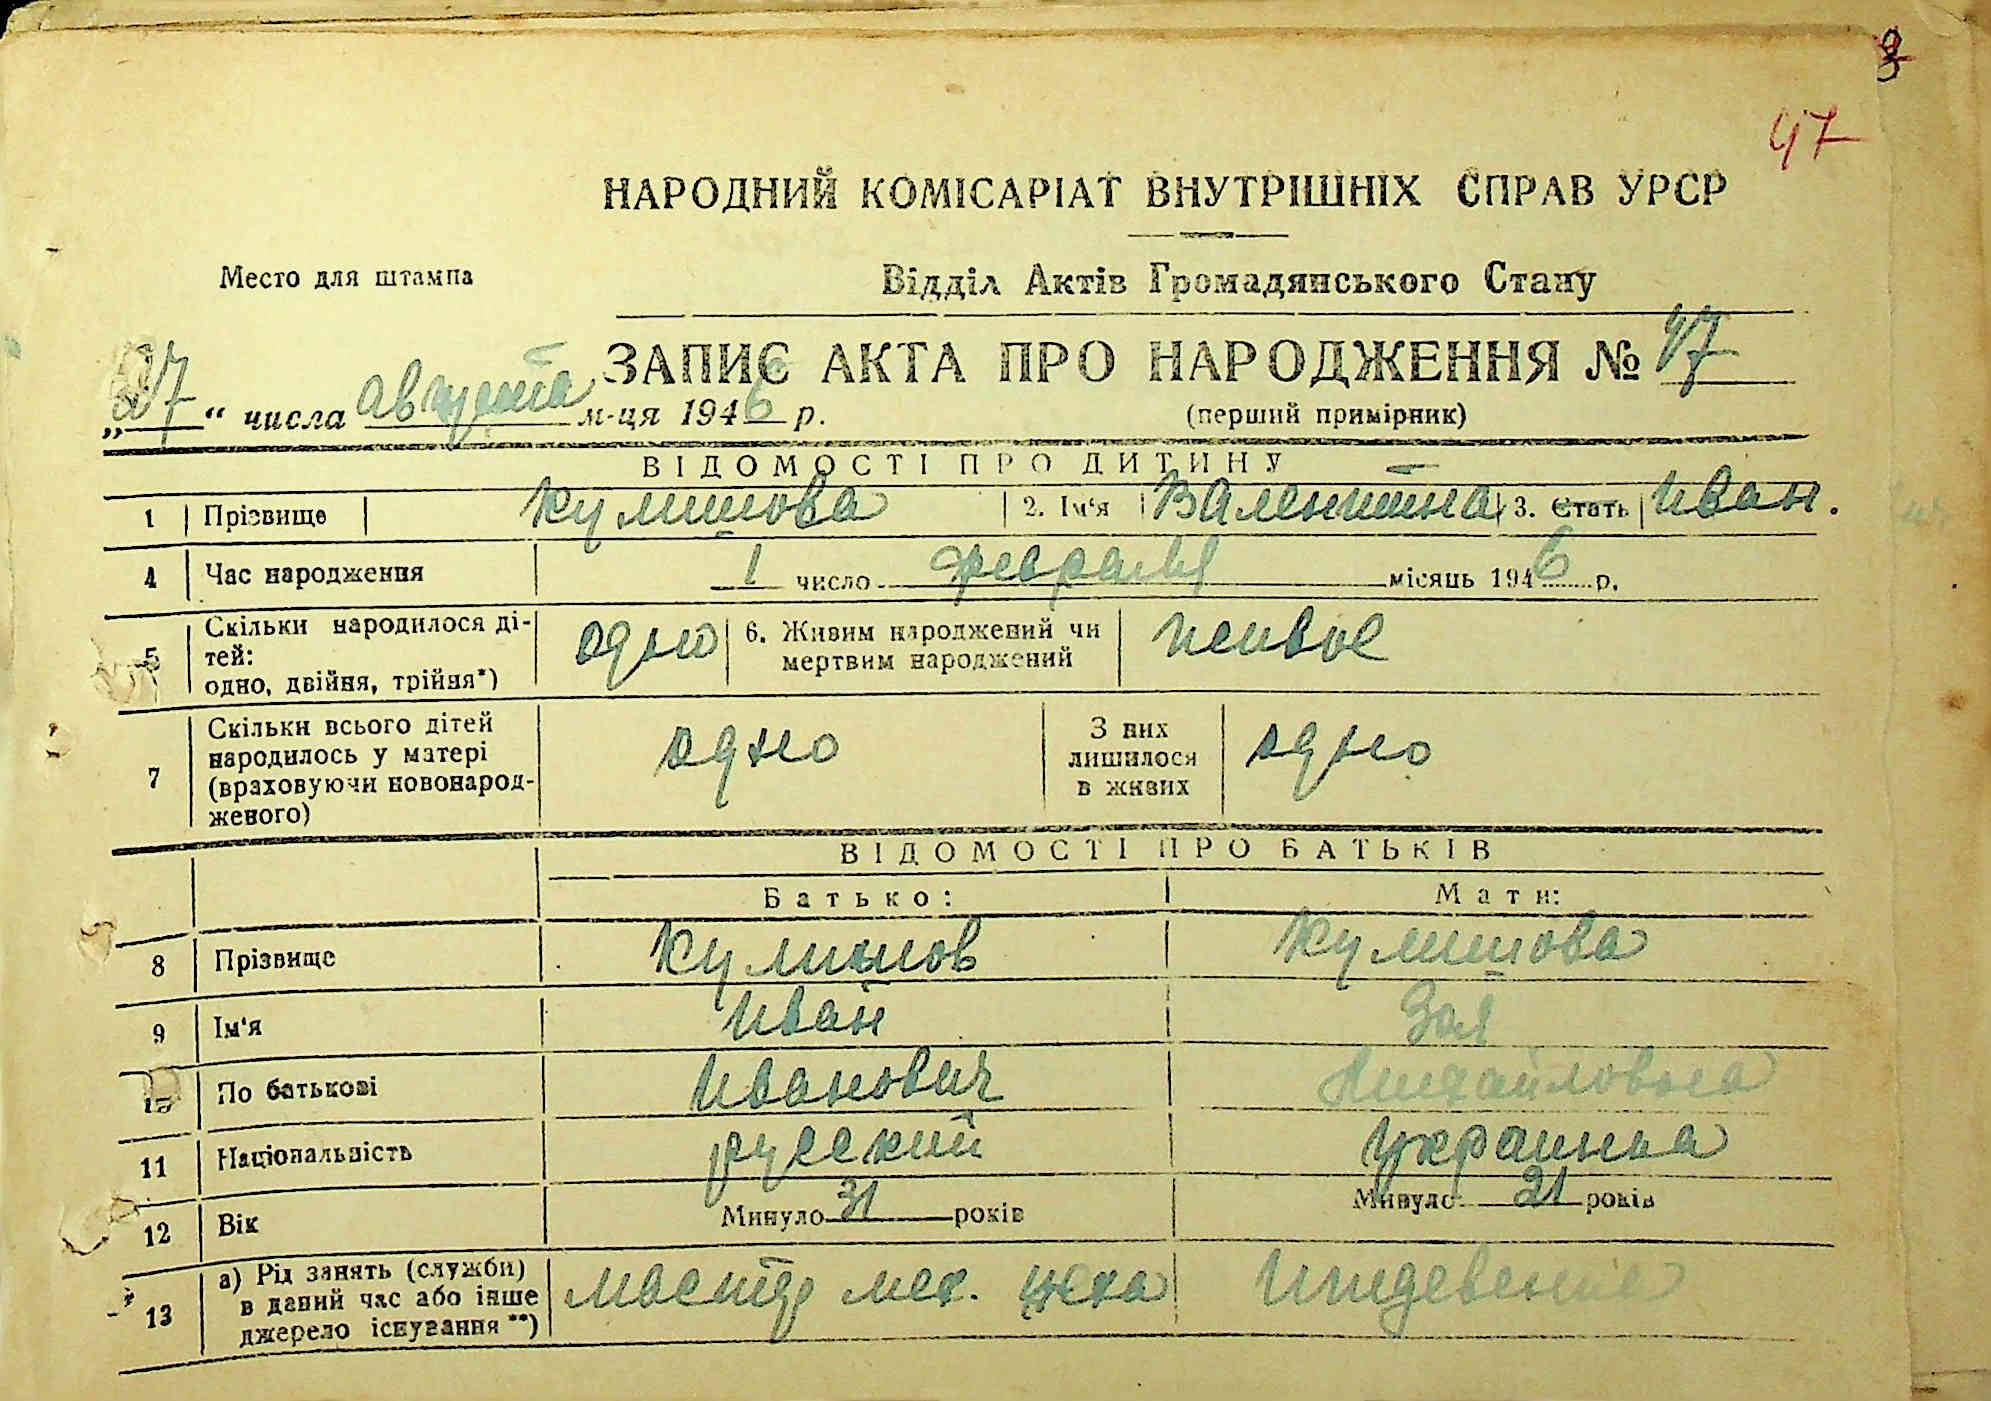 3
47
НАРОДНИЙ КОМІСАРІАТ ВНУТРІШНІХ СПРАВ УРСР
Место для штампа
Відділ Актів Громадянського Стану
ЗАПИС АКТА ПРО НАРОДЖЕННЯ № 47
„27“ числа августа м-ця 1946 р.
(перший примірник)
ВІДОМОСТІ ПРО ДИТИНУ
1 Прізвище Кулишова 2. Ім‘я Валентина 3. Стать Иван.
4 Час народження 1 число февраля місяць 1946 р.
5 Скільки народилося ді-
тей:
одно, двійня, трійня*) одно
6. Живим народжений чи
мертвим народжений живое
7 Скільки всього дітей
народилось у матері
(враховуючи новонарод-
женого) одно
З них
лишилося
в живих одно
ВІДОМОСТІ ПРО БАТЬКІВ
Батько: Мати:
8 Прізвище Кулишов Кулишова
9 Ім‘я Иван Зоя
10 По батькові Иванович Михайловна
11 Національність русский украинка
12 Вік Минуло 31 років Минуло 21 років
13 а) Рід занять (служби)
в даний час або інше
джерело існування **) мастер мех. цеха Иждевение